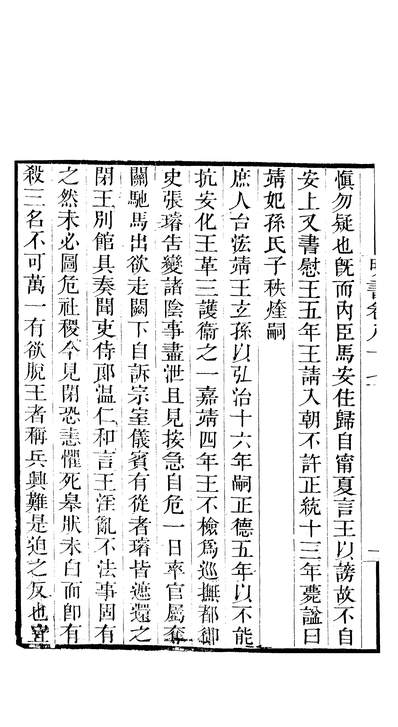 愼勿疑也旣而內臣馬安住歸自甯夏言王以謗故不自
安上又書慰王五年王請入朝不許正統十三年薨謚曰
靖妃孫氏子秩煃嗣
庶人台浤靖王玄孫以弘治十六年嗣正德五年以不能
抗安化王革三護衞之一嘉靖四年王不檢爲巡撫都御
史張璿告變諸陰事盡泄且見按急自危一日率官屬奪
關馳馬出欲走闕下自訴宗室儀賓有從者璿皆遮還之
閉王別館具奏聞吏侍郎溫仁和言王淫亂不法事固有
之然未必圖危社稷今見閉恐恚懼死辠狀未白而卽有
殺三名不可萬一有欲脫王者稱兵興難是迫之反也宜
明書卷八十
一